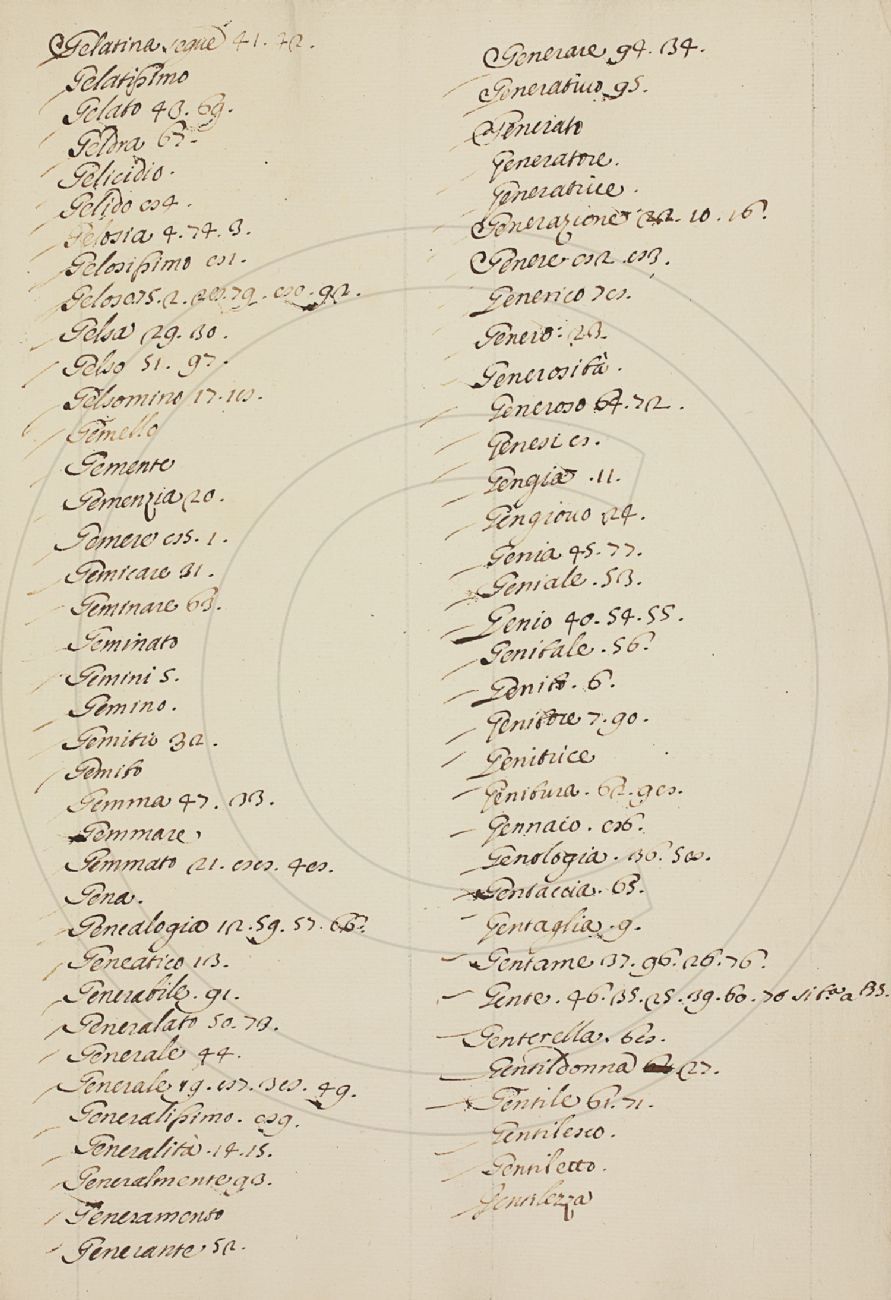 Gelatina segue 41. 42.
Gelatissimo
Gelato 43. 69.
Geldra 67.
Gelicidio.
Gelido 84.
Gelosia 4. 74. 3.
Gelosissimo 81.
Geloso 75. 2. 28. 79. 80. 92.
Gelsa 29. 30.
Gelso 51. 97.
Gelsomino 17. 18.
Gemello
Gemente
Gemenzia 20.
Gemere 85. 1.
Gemicare 31.
Geminare 63.
Geminato
Gemini 5.
Gemino.
Gemitio 32.
Gemito
Gemma 47. 33.
Gemmare
Gemmato 21. 88. 48.
Gena.
Genealogia 12. 59. 57. 66.
Geneatico 13.
Generabile. 91.
Generalato 50. 73.
Generale 44.
Generale 19. 87. 38. 49.
Generalissimo. 89.
Generalità. 14. 15.
Generalmente 93.
Generamento
Generante 52.
Generare 94. 34.
Generativo 95.
Generato
Generatore.
Generatrice.
Generazione 22. 10. 16.
Genere 82. 83.
Generico 78.
Genero: 23.
Generosità.
Generoso 64. 72.
Genesi 8.
Gengia. 11.
Gengiovo 24.
Genia 45. 77.
Geniale. 53.
Genio 40. 54. 55.
Genitale. 56.
Genito. 6.
Genitore 7. 90.
Genitrice
Genitura. 62. 98.
Gennaio. 86.
Genologia. 36. 58.
Gentaccia. 65.
Gentaglia. 9.
Gentame 37. 96. 26. 76.
Gente. 46. 35. 25. 39. 60. 70 a 135.
Genterella. 68.
Gentildonna 27.
Gentile 61. 71.
Gentilesco.
Gentiletto.
Gentilezza